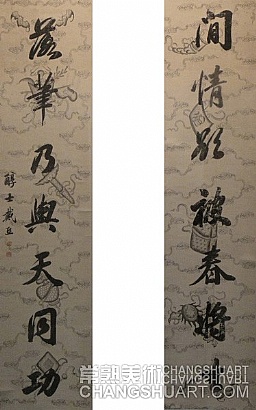 間情欲被春將
落筆乃與天同功
醇士戴熙
常熟美術CHANGSHUART
CHANGSHUART.COM